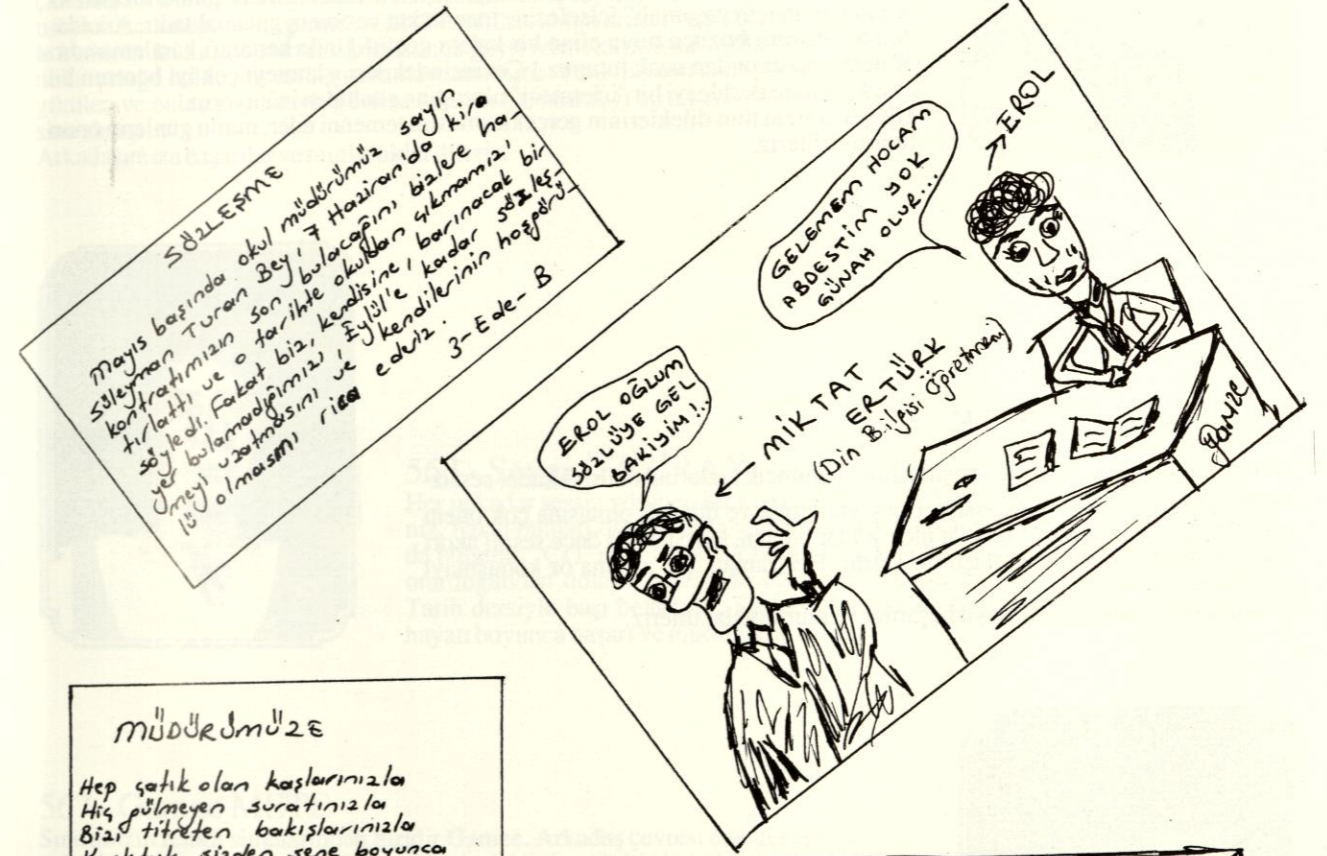 SÖZLEŞME
Mayıs başında okul müdürümüz sayın
Süleyman Turan Bey, 7 Haziran'da kira
kontratımızın son bulacağını bizlere ha-
tırlattı ve o tarihte okuldan çıkmamızı
söyledi. Fakat biz, kendisine, barınacak bir
yer bulamadığımızı, Eylül'e kadar sözleş-
meyi uzatmasını ve kendilerinin hoşgörü-
lü olmasını rica ederiz.
3-Ede-B
EROL
GELEMEM HOCAM
ABDESTİM YOK
GÜNAH OLUR....
EROL OĞLUM
SÖZLÜYE GEL
BAKİYİM!..
MİKTAT
ERTÜRK
(Din Bilgisi Öğretmeni)
Gamze
MÜDÜRÜMÜZE
Hep çatık olan kaşlarınızla
Hiç gülmeyen suratınızla
Bizi titreten bakışlarınızla
sizden sene boyunca